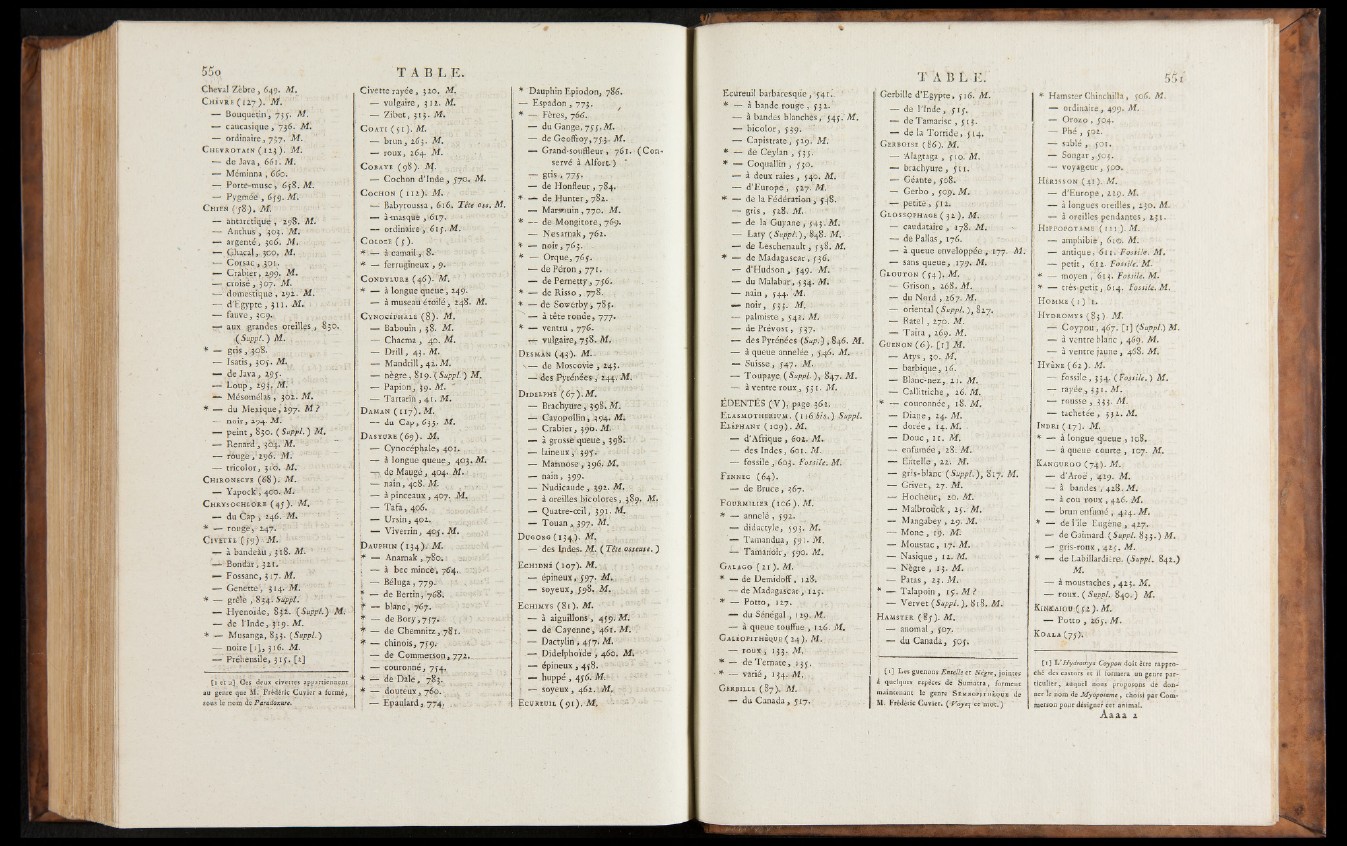 550
TABLE.
Cheval Zèbre, 649. M.
CHÈVRE (127). M.
— Bouquetin, 735. M.
— caucasique, 736. M.
— ordinaire, 737. M.
CHEVROTAIN (123). M.
— de Java, 661. M.
— Méminna, 660.
— Porte-musc, 658. M.
— Pygmée, 659. M.
CHIEN (58). M.
— antarctique, 298. M.
— Anthus, 303. M.
— argenté, 306. M.
— Chacal, 300. M.
— Corsac, 301.
— Crabier, 299. M.
— croisé, 307. M.
— domestique, 292. M.
— d'Egypte, 311. M.
— fauve, 309.
— aux grandes oreilles, 830.
(Suppl.) M.
* — gris, 308.
— Isatis, 305. M.
— de Java, 295.
— Loup, 293. M.
— Mésomélas, 302. M.
* — du Mexique, 297. M?
— noir, 294. M.
— peint, 830. (Suppl.) M.
— Renard, 304. M.
— rouge, 296. M.
— tricolor, 310. M.
CHIRONECTE (68). M.
— Yapock, 400. M.
CHRYSOCHLORE (45). M.
— du Cap, 246. M.
* — rouge, 247.
CIVETTE (59). M.
— à bandeau, 318. M.
— Bondar, 321.
— Fossane, 317. M.
— Genette, 314. M.
* — grêle, 834. Suppl.
— Hyenoïde, 832. (Suppl.) M.
— de l'Inde, 319. M.
* — Musanga, 833. (Suppl.)
— noire [1], 316. M.
— Préhensile, 315. [2]
[1 et 2] Ces deux civettes appartiennent
au genre que M. Frédéric Cuvier a formé,
sous le nom de Paradoxure.
Civette rayée, 320. M.
— vulgaire, 312. M.
— Zibet, 313. M.
COATI (51). M.
— brun, 263. M.
— roux, 264. M.
COBAYE (98). M.
— Cochon d'Inde, 570. M.
COCHON (112). M.
— Babyroussa, 616. Tête oss. M.
— à masque, 617.
— ordinaire, 615. M.
COLOBE (5).
* — à camail, 8.
* — ferrugineux, 9.
CONDYLURE (46). M.
* — à longue queue, 249.
— à museau étoilé, 248. M.
CYNOCÉPHALE (8). M.
— Babouin, 38. M.
— Chacma, 40. M.
— Drill, 43. M.
— Mandrill, 42. M.
— nègre, 819. (Suppl.) M.
— Papion, 39. M.
— Tartarin, 41. M.
DAMAN (117). M.
— du Cap, 635. M.
DASYURE (69). M.
— Cynocéphale, 401.
— à longue queue, 403. M.
— de Maugé, 404. M.
— nain, 408. M.
— à pinceaux, 407. M.
— Tafa, 406.
— Ursin, 402.
— Viverrin, 405. M.
DAUPHIN (134). M.
* — Anarnak, 780.
— à bec mince, 764.
— Béluga, 779.
* — de Bertin, 768.
* — blanc, 767.
* — de Bory, 757.
* — de Chemnitz, 781.
* — chinois, 759.
* — de Commerson, 772.
— couronné, 754.
* — de Dale, 783.
* — douteux, 760.
— Epaulard, 774.
* Dauphin Epiodon, 786.
— Espadon, 773.
* — Fères, 766.
— du Gange, 755. M.
— de Geoffroy, 753. M.
— Grand-souffleur, 761. (Con-
servé à Alfort.)
— gris, 775.
— de Honfleur, 784.
* — de Hunter, 782.
— Marsouin, 770. M.
* — de Mongitore, 769.
— Nesarnak, 762.
* — noir, 763.
* — Orque, 765.
— de Péron, 771.
— de Pernetty, 756.
* — de Risso, 778.
* — de Sowerby, 785.
— à tête ronde, 777.
* — ventru, 776.
— vulgaire, 758. M.
DESMAN (43). M.
— de Moscovie, 243.
— des Pyrénées, 244. M.
DIDELPHE (67). M.
— Brachyure, 398. M.
— Cayopollin, 394. M.
— Crabier, 390. M.
— à grosse queue, 398.
— laineux, 395.
— Marmose, 396. M.
— nain, 399.
— Nudicaude, 392. M.
— à oreilles bicolores, 389. M.
— Quatre-œil, 391. M.
— Touan, 397. M.
DUGONG (134). M.
— des Indes. M. (Tête osseuse.)
ECHIDNÉ (107). M.
— épineux, 597. M.
— soyeux, 598. M.
ECHIMYS (81). M.
— à aiguillons, 459. M.
— de Cayenne, 461. M.
— Dactylin, 457. M.
— Didelphoïde, 460. M.
— épineux, 458.
— huppé, 456. M.
— soyeux, 462. M.
ECUREUIL (91). M.
TABLE.
551
Ecureuil barbaresque, 541.
* — à bande rouge, 532.
— à bandes blanches, 545. M.
— bicolor, 539.
— Capistrate, 529. M.
* — de Ceylan, 535.
* — Coquallin, 530.
— à deux raies, 540. M.
— d'Europe, 527. M.
* — de la Fédération, 548.
— gris, 528. M.
— de la Guyane, 543. M.
— Lary (Suppl.), 848. M.
— de Leschenault, 538. M.
* — de Madagascar, 536.
— d'Hudson, 549. M.
— du Malabar, 534. M.
— nain, 544. M.
— noir, 533. M.
— palmiste, 542. M.
— de Prévost, 537.
— des Pyrénées (Sup.), 846. M.
— à queue annelée, 546. M.
— Suisse, 547. M.
— Toupaye (Suppl.), 847. M.
— à ventre roux, 531. M.
ÉDENTÉS (V), page 362.
ELASMOTHERIUM. (116 bis.) Suppl.
ELÉPHANT (109). M.
— d'Afrique, 602. M.
— des Indes, 601. M.
— fossile, 603. Fossile. M.
FENNEC (64).
— de Bruce, 367.
FOURMILIER (106). M.
* — annelé, 592.
— didactyle, 593. M.
— Tamandua, 591. M.
— Tamanoir, 590. M.
GALAGO (21). M.
* — de Demidoff, 128.
— de Madagascar, 125.
* — Potto, 127.
— du Sénégal, 129. M.
— à queue touffue, 126. M.
GALÉOPITHÈQUE (24). M.
— roux, 133. M.
* — de Ternate, 135.
* — varié, 134. M.
GERBILLE (87). M.
— du Canada, 517.
Gerbille d'Egypte, 516. M.
— de l'Inde, 515.
— de Tamarisc, 513.
— de la Torride, 514.
GERBOISE (86). M.
— Alagtaga, 510. M.
— brachyure, 511.
— Géante, 508.
— Gerbo, 509. M.
— petite, 512.
GLOSSOPHAGE (32). M.
— caudataire, 178. M.
— de Pallas, 176.
— à queue enveloppée, 177. M.
— sans queue, 179. M.
GLOUTON (54). M.
— Grison, 268. M.
— du Nord, 267. M.
— oriental (Suppl.), 827.
— Ratel, 270. M.
— Taïra, 269. M.
GUENON (6). [1] M.
— Atys, 30. M.
— barbique, 16.
— Blanc-nez, 21. M.
— Callitriche, 26. M.
* — couronnée, 18. M.
— Diane, 24. M.
— dorée, 14. M.
— Douc, 11. M.
— enfumée, 28. M.
— Entelle, 22. M.
— gris-blanc (Suppl.), 817. M.
— Grivet, 27. M.
— Hocheur, 20. M.
— Malbrouck, 25. M.
— Mangabey, 29. M.
— Mone, 19. M.
— Moustac, 17. M.
— Nasique, 12. M.
— Nègre, 13. M.
— Patas, 23. M.
* — Talapoin, 15. M?
— Vervet (Suppl.), 818. M.
HAMSTER (85). M.
— anomal, 507.
— du Canada, 505.
[1] Les guenons Entelle et Nègre, jointes
à quelques espèces de Sumatra, forment
maintenant le genre SEMNOPITHÈQUE de
M. Frédéric Cuvier. (Voyez ce mot.)
* Hamster Chinchilla, 506. M.
— ordinaire, 499. M.
— Orozo, 504.
— Phé, 502.
— sablé, 501.
— Songar, 503.
— voyageur, 500.
HÉRISSON (41). M.
— d'Europe, 229. M.
— à longues oreilles, 230. M.
— à oreilles pendantes, 231.
HIPPOPOTAME (111). M.
— amphibie, 610. M.
— antique, 611. Fossile. M.
— petit, 612. Fossile. M.
* — moyen, 613. Fossile. M.
* — très-petit, 614. Fossile. M.
HOMME (1) 1.
HYDROMYS (83). M.
— Coypou, 467. [1] (Suppl.) M.
— à ventre blanc, 469. M.
— à ventre jaune, 468. M.
HYÈNE (62). M.
— fossile, 334. (Fossile.) M.
— rayée, 331. M.
— rousse, 333. M.
— tachetée, 332. M.
INDRI (17). M.
* — à longue queue, 108.
— à queue courte, 107. M.
KANGUROO (74). M.
— d'Aroé, 429. M.
— à bandes, 428. M.
— à cou roux, 426. M.
— brun enfumé, 424. M.
* — de l'île Eugène, 427.
— de Gaimard (Suppl. 833.) M.
— gris-roux, 425. M.
* — de Labillardière. (Suppl. 842.)
M.
— à moustaches, 423. M.
— roux. (Suppl. 840.) M.
KINKAJOU (52). M.
— Potto, 265. M.
KOALA (75).
[1] L'Hydromys Coypou doit être rappro-
ché des castors et il formera un genre par-
ticulier, auquel nous proposons de don-
ner le nom de Myopotame, choisi par Com-
merson pour désigner cet animal.
Aaaa 2